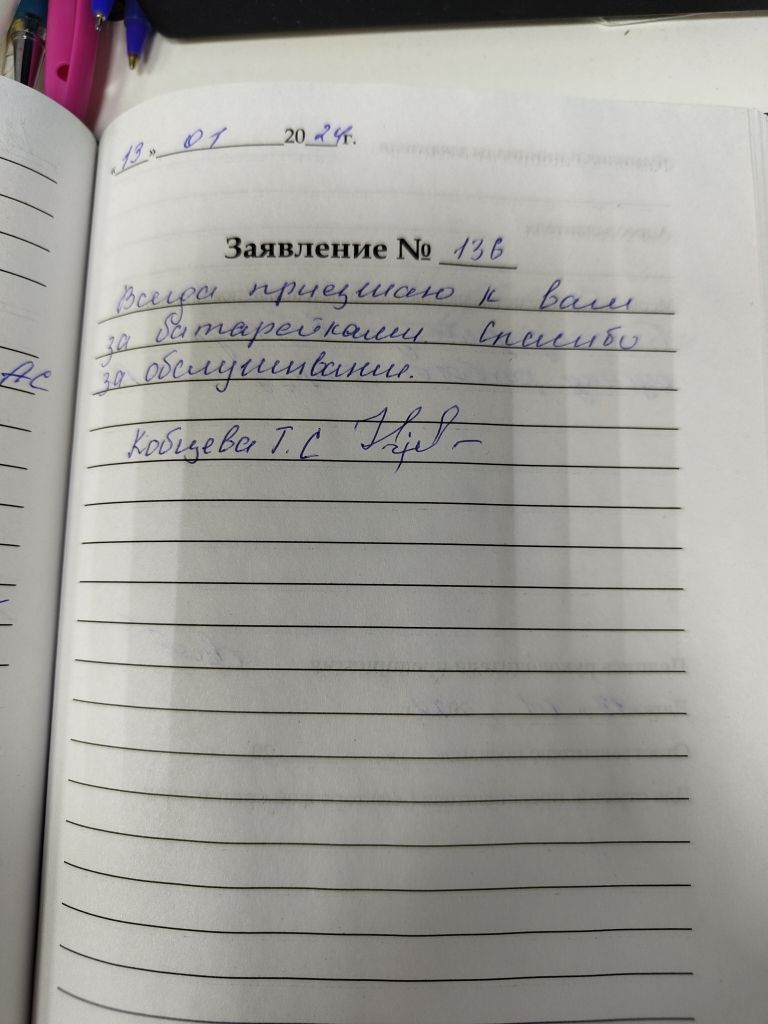 «13» 01 2024г.
Заявление № 136
Всегда приезжаю к вам
за батарейками. Спасибо
за обслуживание.
Кобцева Т.С
АС